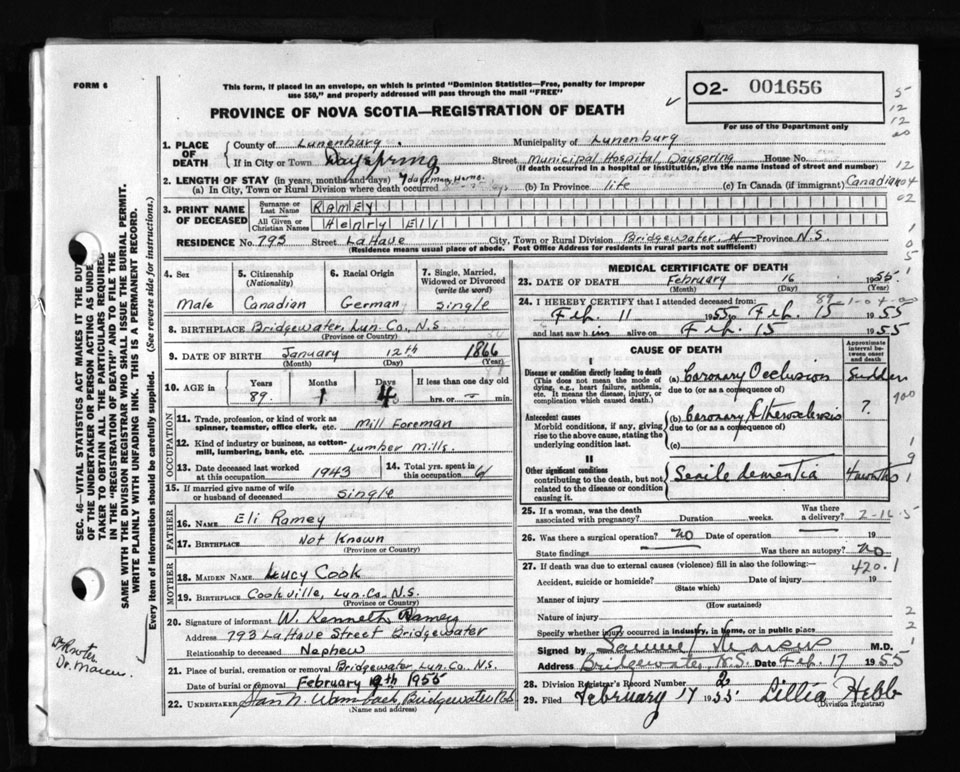 FORM 6
This form, if placed in an envelope, on which is printed "Dominion Statistics—Free, penalty for improper
use $50," and properly addressed will pass through the mail "FREE"
PROVINCE OF NOVA SCOTIA—REGISTRATION OF DEATH
O2- 001656
For use of the Department only
5
12
12
20
12
02
SEC. 46—VITAL STATISTICS ACT MAKES IT THE DUTY
OF THE UNDERTAKER OR PERSON ACTING AS UNDER-
TAKER TO OBTAIN ALL THE PARTICULARS REQUIRED
IN THE "REGISTRATION OF DEATH" AND TO FILE THE
SAME WITH THE DIVISION REGISTRAR WHO SHALL ISSUE THE BURIAL PERMIT.
WRITE PLAINLY WITH UNFADING INK. THIS IS A PERMANENT RECORD.
Every item of information should be carefully supplied. (See reverse side for instructions.)
1. PLACE OF DEATH
County of Lunenburg Municipality of Lunenburg
If in City or Town Dayspring Street Municipal Hospital Dayspring House No.
(If death occurred in a hospital or institution, give the name instead of street and number)
2. LENGTH OF STAY (in years, months and days)
(a) In City, Town or Rural Division where death occurred 7 days (b) In Province life (c) In Canada (if immigrant) Canadian
3. PRINT NAME OF DECEASED
Surname or Last Name RAMEY
All Given or Christian Names Henry Eli
RESIDENCE No. 793 Street LaHave City, Town or Rural Division Bridgewater Province N.S.
(Residence means usual place of abode. Post Office Address for residents in rural parts not sufficient)
4. Sex Male
5. Citizenship (Nationality) Canadian
6. Racial Origin German
7. Single, Married, Widowed or Divorced (write the word) single
8. BIRTHPLACE Bridgewater, Lun. Co., N.S.
(Province or Country)
9. DATE OF BIRTH January 12th 1866
(Month) (Day) (Year)
10. AGE in Years 89 Months 1 Days 4 If less than one day old hrs. or min.
OCCUPATION
11. Trade, profession, or kind of work as
spinner, teamster, office clerk, etc. Mill Foreman
12. Kind of industry or business, as cotton-
mill, lumbering, bank, etc. Lumber Mills.
13. Date deceased last worked at this occupation 1943
14. Total yrs. spent in this occupation 61
15. If married give name of wife
or husband of deceased single
FATHER
16. NAME Eli Ramey
17. BIRTHPLACE Not Known
(Province or Country)
MOTHER
18. MAIDEN NAME Lucy Cook
19. BIRTHPLACE Cookville, Lun. Co. N.S.
(Province or Country)
20. Signature of informant W. Kenneth Ramey
Address 793 LaHave Street Bridgewater
Relationship to deceased Nephew
21. Place of burial, cremation or removal Bridgewater Lun. Co. N.S.
Date of burial or removal February 1955
22. UNDERTAKER Bridgewater N.S.
(Name and address)
MEDICAL CERTIFICATE OF DEATH
23. DATE OF DEATH February 16 1955
(Month) (Day)
24. I HEREBY CERTIFY that I attended deceased from:
Feb. 11 1955 Feb. 15 1955
and last saw him alive on Feb. 15 1955
CAUSE OF DEATH
Approximate interval between onset and death
I
Disease or condition directly leading to death
(This does not mean the mode of
dying, e.g., heart failure, asthenia,
etc. It means the disease, injury, or
complication which caused death.)
(a) Coronary Occlusion Sudden
due to (or as a consequence of)
Antecedent causes
Morbid conditions, if any, giving
rise to the above cause, stating the
underlying condition last.
(b) Coronary Atherosclerosis ?
due to (or as a consequence of)
(c)
II
Other significant conditions
contributing to the death, but not
related to the disease or condition
causing it.
Senile dementia 4 months
25. If a woman, was the death
associated with pregnancy? Duration weeks. Was there a delivery? 2-16-5
26. Was there a surgical operation? no Date of operation 19
State findings Was there an autopsy? no
27. If death was due to external causes (violence) fill in also the following:— 420.1
Accident, suicide or homicide? Date of injury 19
(State which)
Manner of injury
(How sustained)
Nature of injury
Specify whether injury occurred in industry, in home, or in public place
Signed by M.D.
Address Bridgewater, N.S. Date Feb. 17 1955
28. Division Registrar's Record Number 2
29. Filed February 17 1955 Lillia Hebb
(Division Registrar)